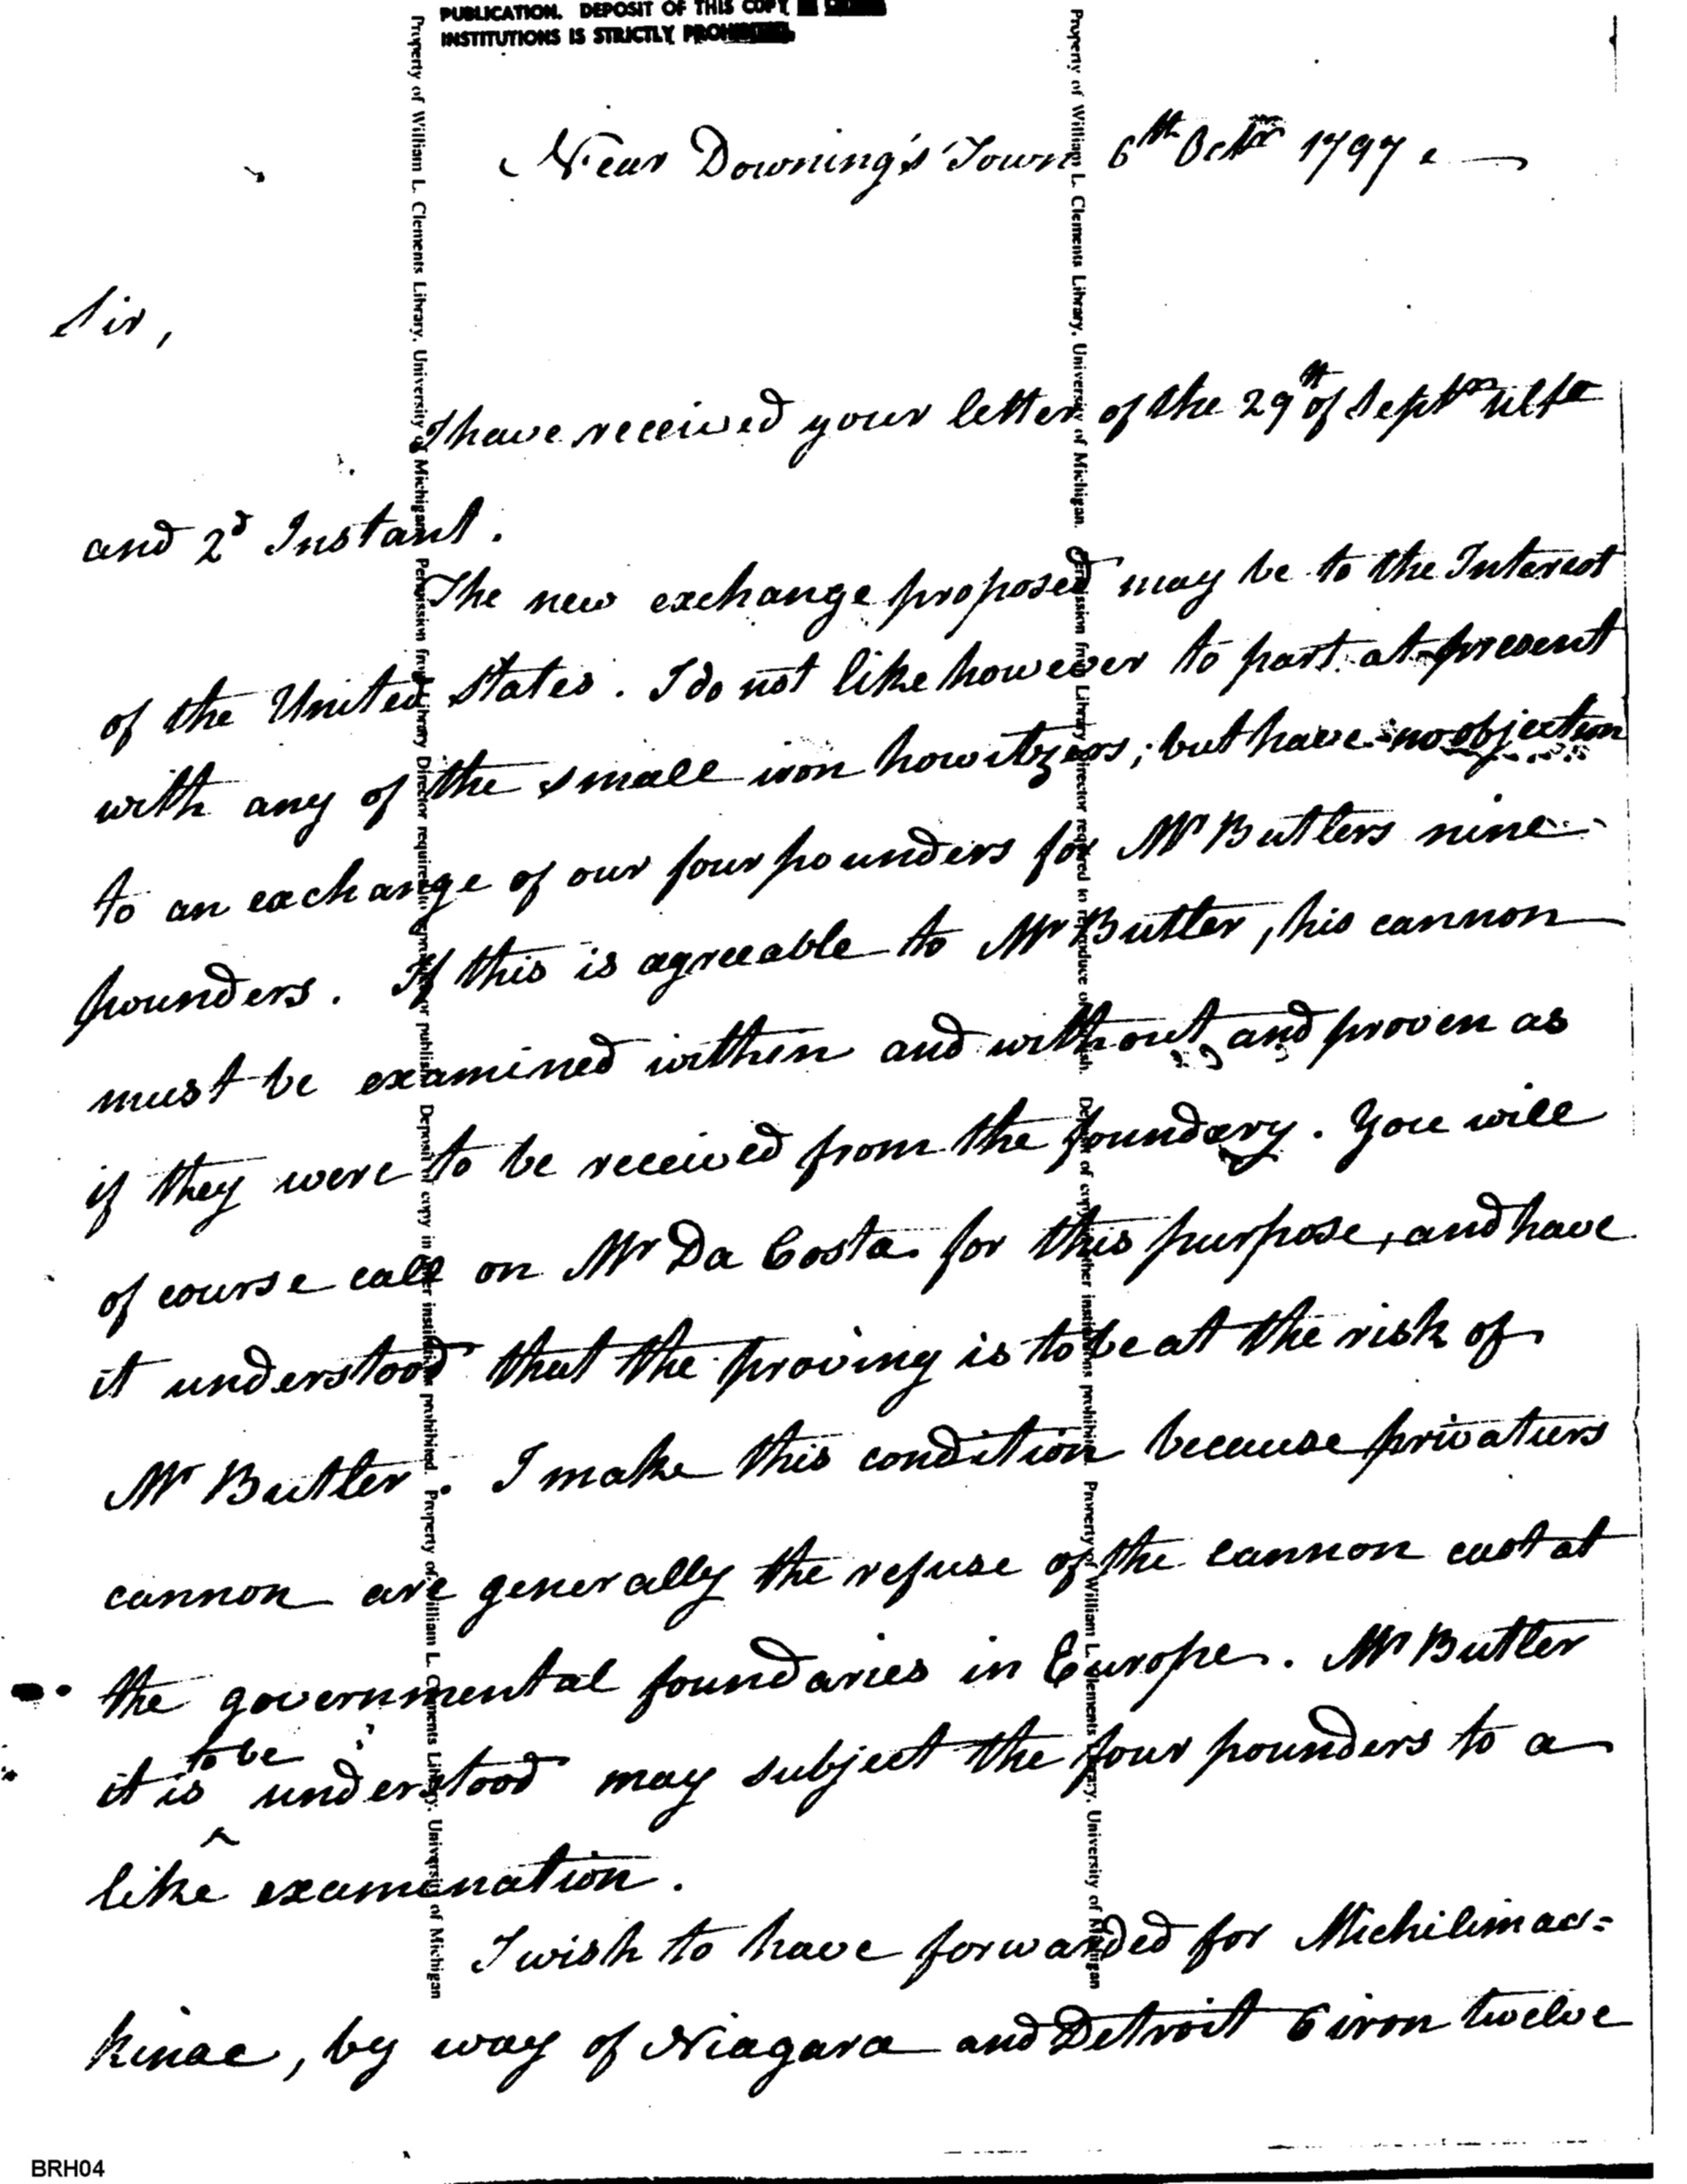 PUBLICATION. DEPOSIT OF THIS COPY
INSTITUTIONS IS STRICTLY PROHIBITED.
Near Downing's Town 6th Octr 1797.
Sir,
I have received your letter of the 29th of Septmr ulto
and 2d Instant.
The new exchange proposed may be to the Interest
of the United States. I do not like however to part at present
with any of the small iron howitzers; but have no objection
to an exchange of our four pounders for Mr Butlers nine
pounders. If this is agreeable to Mr Butler, his cannon
must be examined within and without and proven as
if they were to be received from the foundery. You will
of course call on Mr Da Costa for this purpose, and have
it understood that the proving is to be at the risk of
Mr Butler. I make this condition because privatiers
cannon are generally the refuse of the cannon cast at
the governmental foundaries in Europe. Mr Butler
it is to be understood may subject the four pounders to a
like examination.
I wish to have forwarded for Michilimac=
kinac, by way of Niagara and Detroit 6 iron twelve
Property of William L. Clements Library, University of Michigan. Permission from Library Director required to reproduce or publish. Deposit of copy in other institutions prohibited. Property of William L. Clements Library, University of Michigan
Property of William L. Clements Library, University of Michigan. Permission from Library Director required to reproduce or publish. Deposit of copy in other institutions prohibited. Property of William L. Clements Library, University of Michigan
BRH04